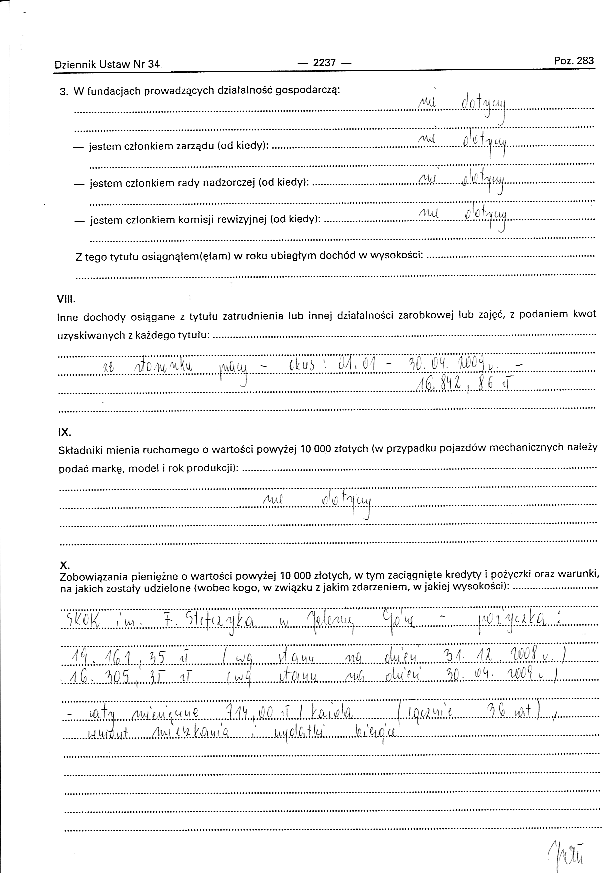 Dziennik Ustaw Nr 34 — 2237 — Poz. 283
3. W fundacjach prowadzących działalność gospodarczą:
nie dotyczy
— jestem członkiem zarządu (od kiedy): nie dotyczy
— jestem członkiem rady nadzorczej (od kiedy): nie dotyczy
— jestem członkiem komisji rewizyjnej (od kiedy): nie dotyczy
Z tego tytułu osiągnąłem(ęłam) w roku ubiegłym dochód w wysokości:
VIII.
Inne dochody osiągane z tytułu zatrudnienia lub innej działalności zarobkowej lub zajęć, z podaniem kwot
uzyskiwanych z każdego tytułu:
ze stosunku pracy - okres: 01.01 - 30.04.2009 r. -
16.842,86 zł
IX.
Składniki mienia ruchomego o wartości powyżej 10 000 złotych (w przypadku pojazdów mechanicznych należy
podać markę, model i rok produkcji):
nie dotyczy
X.
Zobowiązania pieniężne o wartości powyżej 10 000 złotych, w tym zaciągnięte kredyty i pożyczki oraz warunki,
na jakich zostały udzielone (wobec kogo, w związku z jakim zdarzeniem, w jakiej wysokości):
SKOK im. F. Stefczyka w Jeleniej Górze - pożyczka:
19.161,35 zł (wg stanu na dzień 31.12.2008 r.)
16.305,35 zł (wg stanu na dzień 30.04.2009 r.)
- raty miesięczne 714,00 zł / każda (łącznie 36 rat),
remont mieszkania i wydatki bieżące